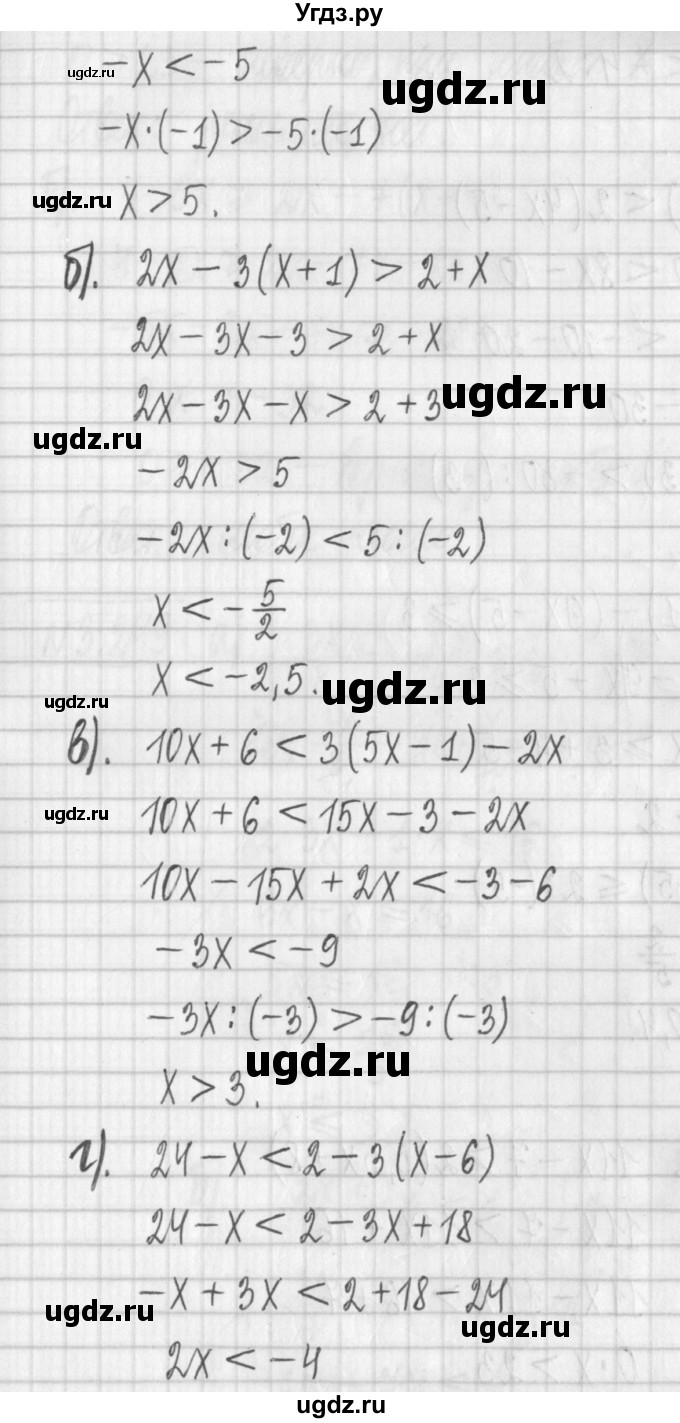 Угдз.ру
ugdz.ru
-x < -5
ugdz.ru
-x·(-1) > -5·(-1)
ugdz.ru
x > 5.
ugdz.ru
б). 2x - 3(x+1) > 2+x
2x - 3x - 3 > 2+x
2x - 3x - x > 2+3
ugdz.ru
ugdz.ru
-2x > 5
-2x : (-2) < 5 : (-2)
x < -5/2
x < -2,5.
ugdz.ru
ugdz.ru
в). 10x + 6 < 3(5x-1) - 2x
10x + 6 < 15x - 3 - 2x
ugdz.ru
10x - 15x + 2x < -3 - 6
-3x < -9
-3x : (-3) > -9 : (-3)
ugdz.ru
x > 3.
г). 24 - x < 2 - 3(x-6)
24 - x < 2 - 3x + 18
-x + 3x < 2 + 18 - 24
ugdz.ru
ugdz.ru
2x < -4
ugdz.ru